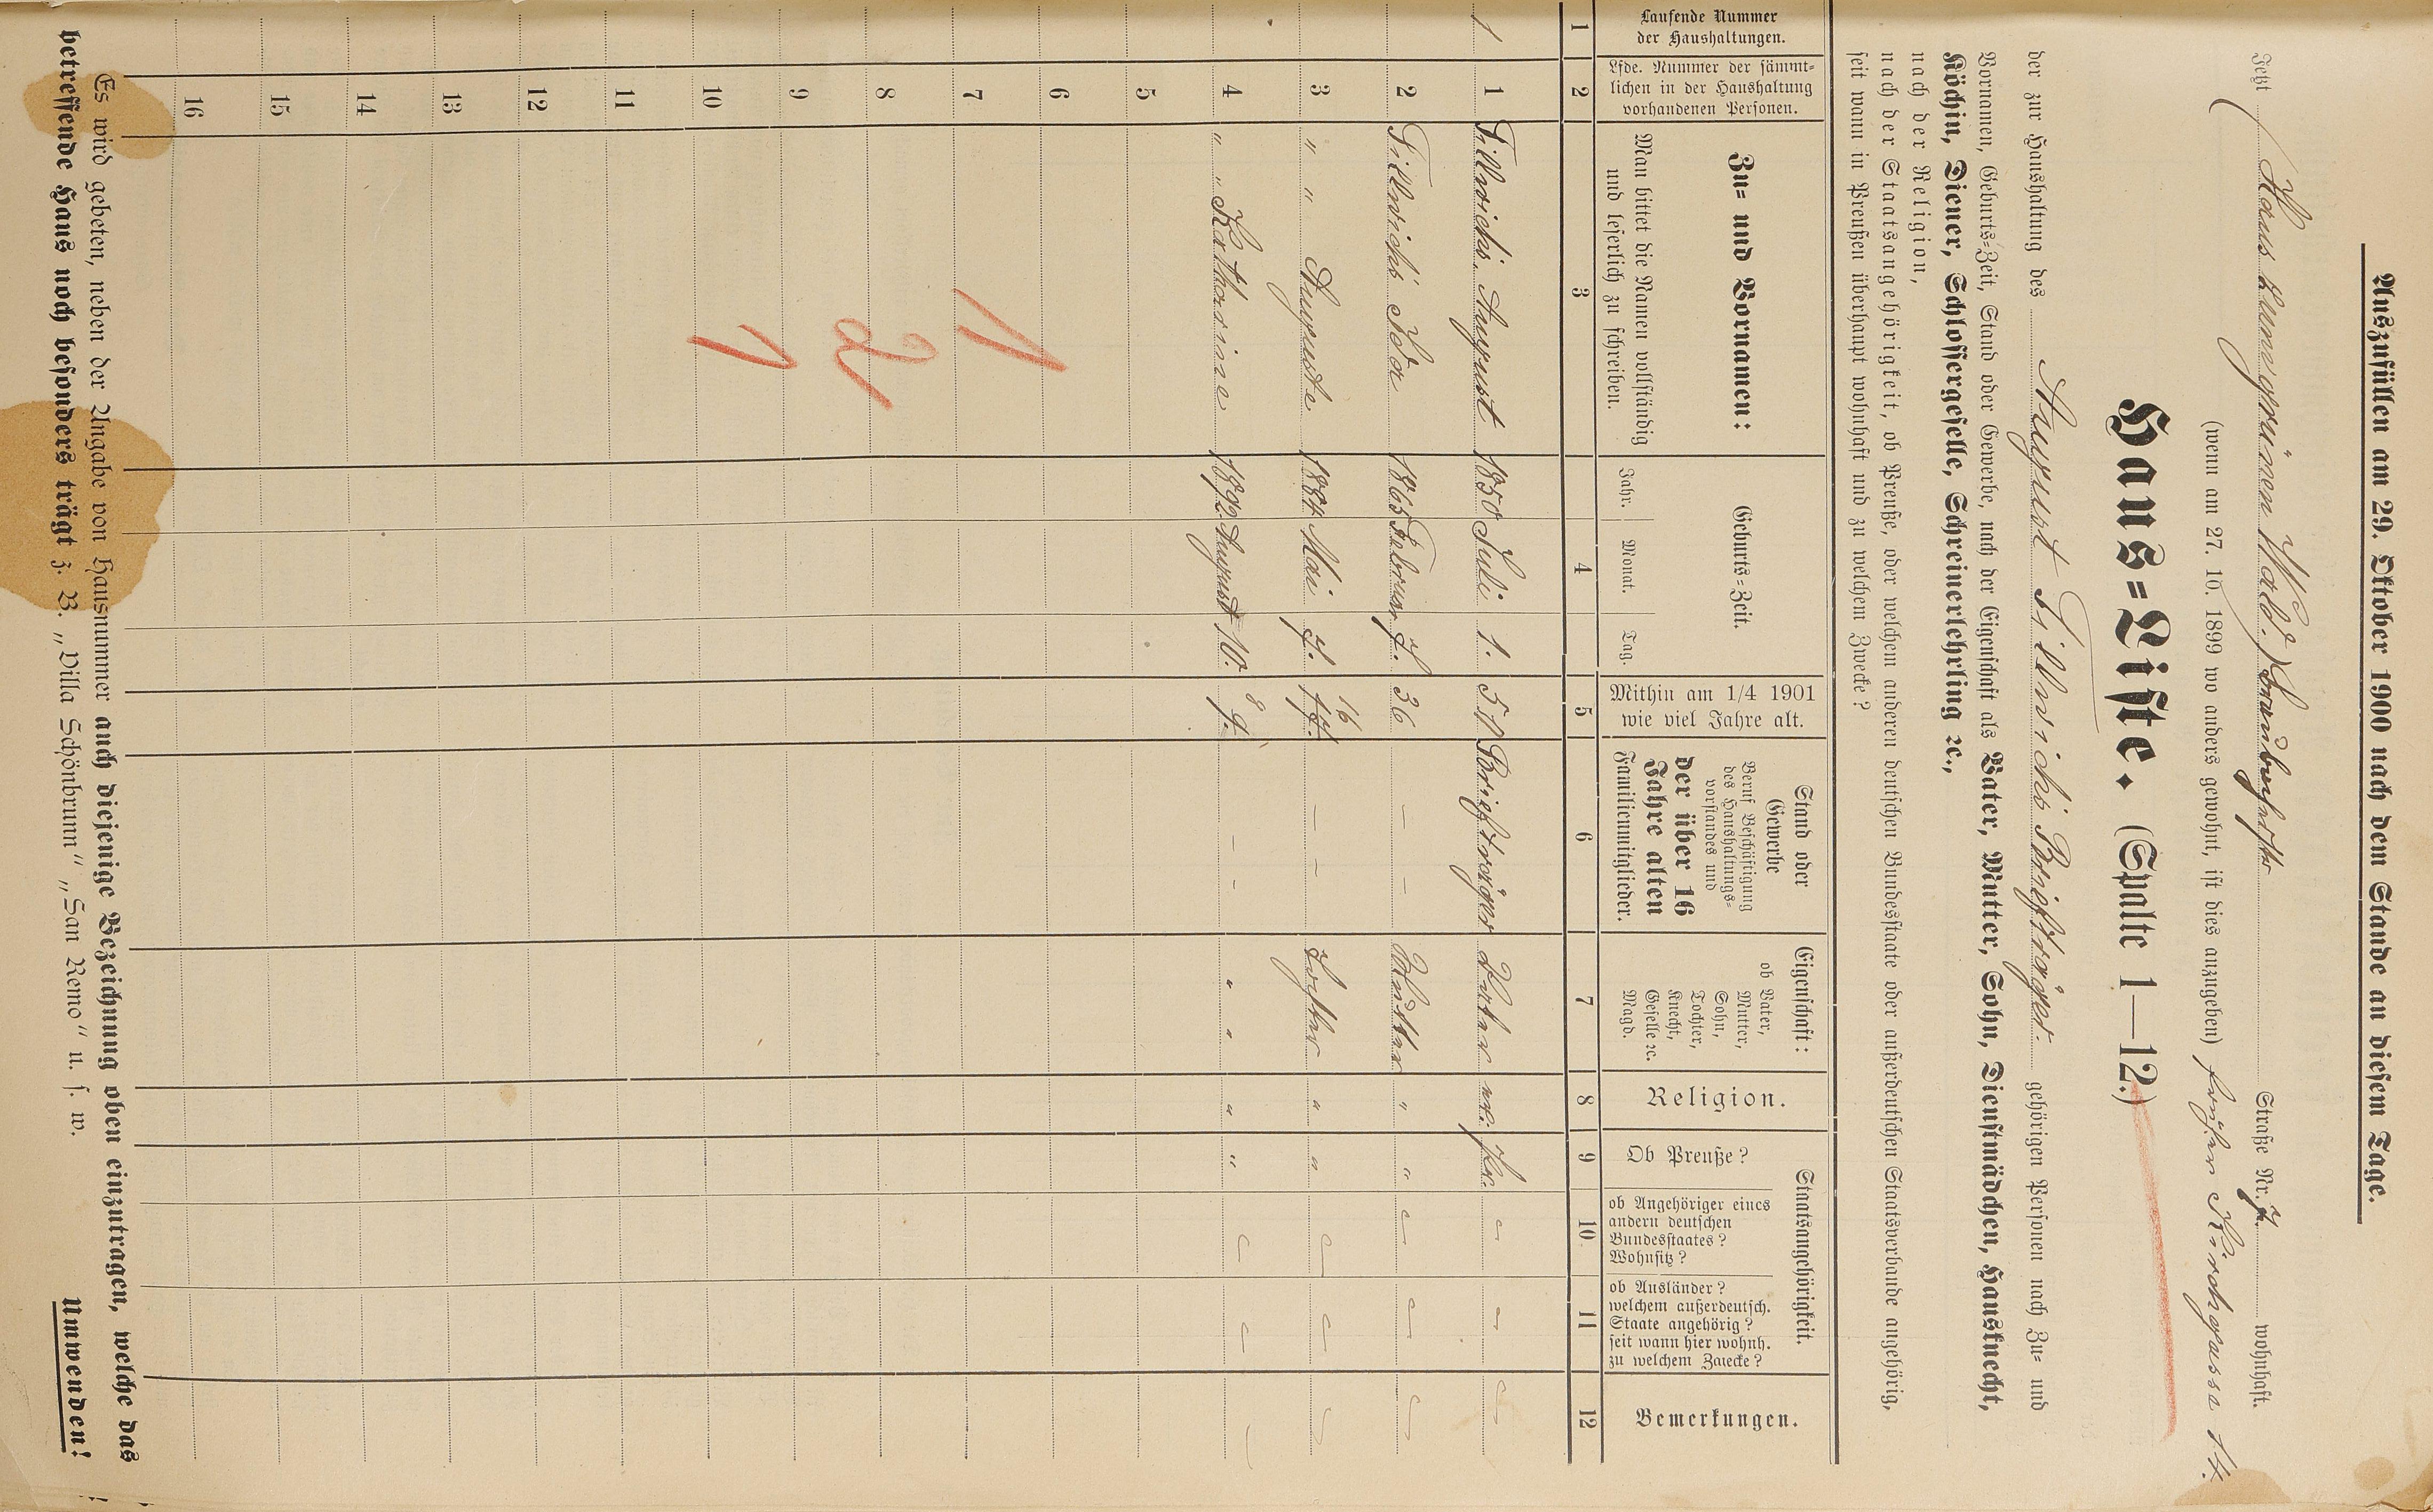 Auszufüllen am 29. Oktober 1900 nach dem Stande an diesem Tage.
Jetzt (Haus zum grünen Wald.) Straße Nr. 7. wohnhaft.
(wenn am 27. 10. 1899 wo anders gewohnt, ist dies anzugeben) früher Kirchgasse 14.
Haus=Liste. (Spalte 1—12.)
der zur Haushaltung des August Briefträger. gehörigen Personen nach Zu= und
Vornamen, Geburts=Zeit, Stand oder Gewerbe, nach der Eigenschaft als Vater, Mutter, Sohn, Dienstmädchen, Hausknecht,
Köchin, Diener, Schlossergeselle, Schreinerlehrling ꝛc.,
nach der Religion,
nach der Staatsangehörigkeit, ob Preuße, oder welchem anderen deutschen Bundesstaate oder außerdeutschen Staatsverbande angehörig,
seit wann in Preußen überhaupt wohnhaft und zu welchem Zwecke?
Laufende Nummer
der Haushaltungen.
Lfde. Nummer der sämmt=
lichen in der Haushaltung
vorhandenen Personen.
Zu= und Vornamen:
Man bittet die Namen vollständig
und leserlich zu schreiben.
Geburts=Zeit.
Jahr. Monat. Tag.
Mithin am 1/4 1901
wie viel Jahre alt.
Stand oder
Gewerbe
Beruf Beschäftigung
des Haushaltungs=
vorstandes und
der über 16
Jahre alten
Familienmitglieder.
Eigenschaft:
ob Vater,
Mutter,
Sohn,
Tochter,
Knecht,
Geselle ꝛc.
Magd.
Religion.
Staatsangehörigkeit.
Ob Preuße?
ob Angehöriger eines
andern deutschen
Bundesstaates?
Wohnsitz?
ob Ausländer?
welchem außerdeutsch.
Staate angehörig?
seit wann hier wohnh.
zu welchem Zwecke?
Bemerkungen.
1 2 3 4 5 6 7 8 9 10 11 12
1 1 August 1850 Juli 1. 51 Briefträger Vater Pr. — — —
2 Ida 1865 Februar 7. 36 — — Mutter " " — — —
3 " " Auguste 1884 Mai 7. 17. 16 — — Tochter " " — — —
4 " " Katharine 1892 August 10. 9. 8 — — " " " " — — —
5
6
7 1
8 2
9
10 1
11
12
13
14
15
16
Es wird gebeten, neben der Angabe von Hausnummer auch diejenige Bezeichnung oben einzutragen, welche das
betreffende Haus noch besonders trägt z. B. „Villa Schönbrunn“ „San Remo“ u. s. w.
Umwenden!